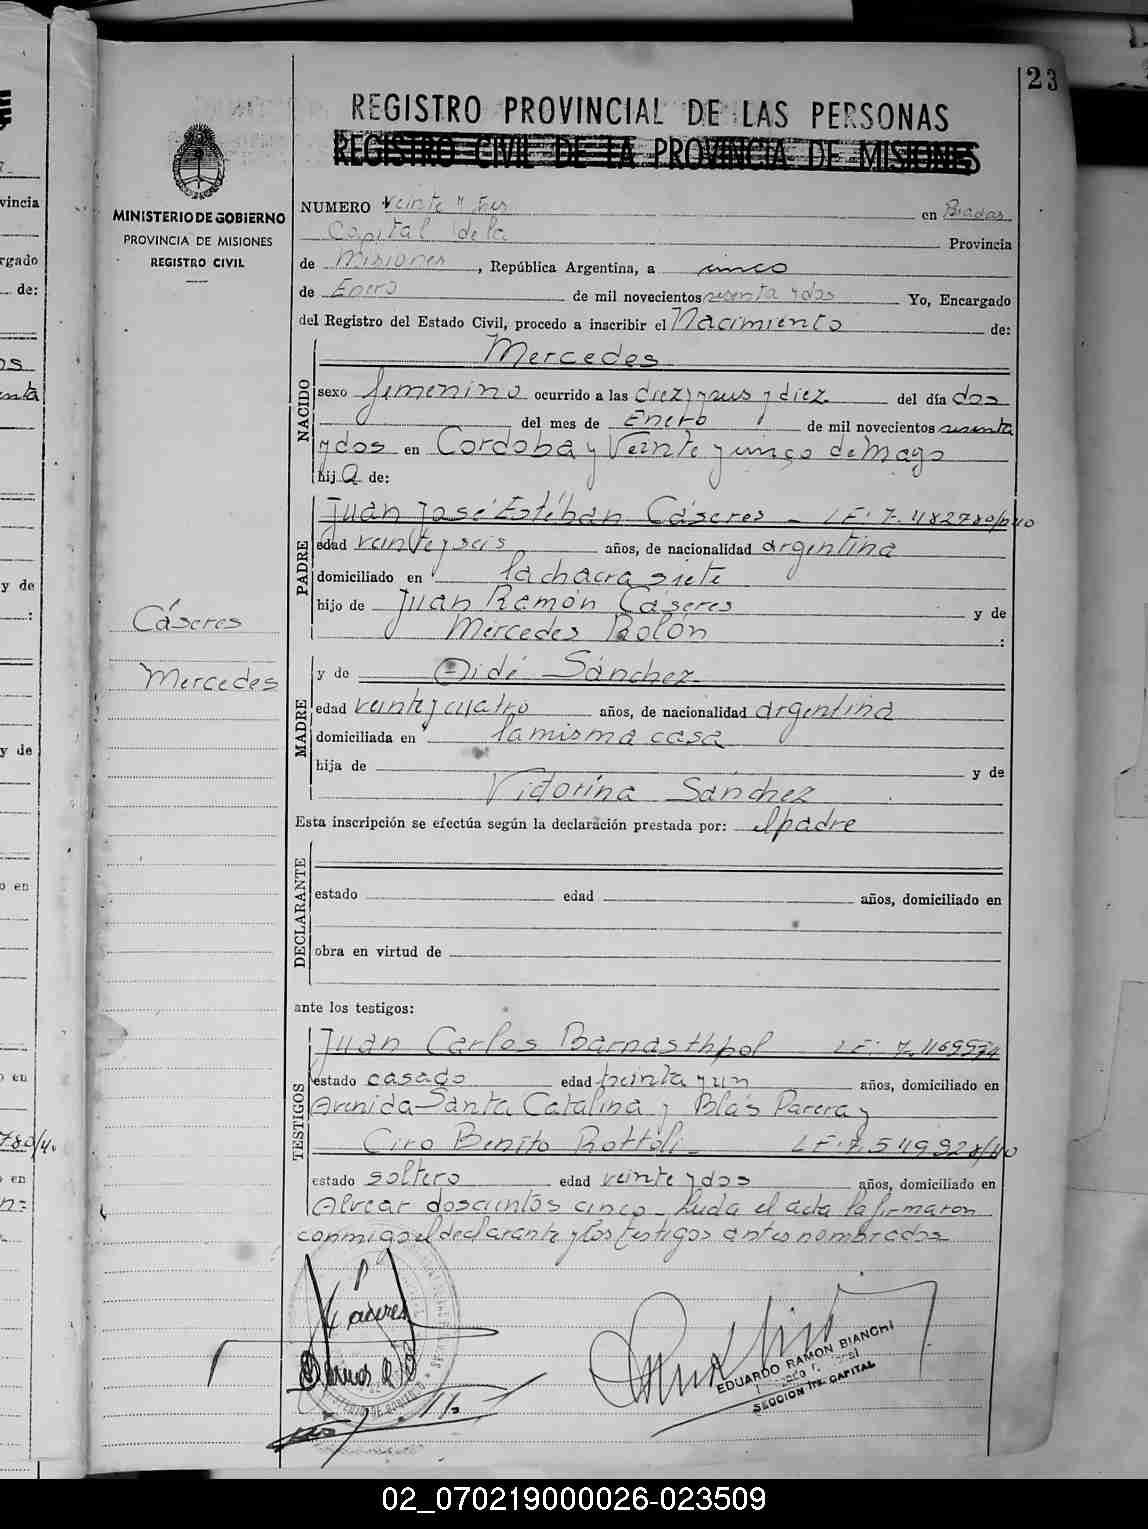 23
REGISTRO PROVINCIAL DE LAS PERSONAS
REGISTRO CIVIL DE LA PROVINCIA DE MISIONES
MINISTERIO DE GOBIERNO
PROVINCIA DE MISIONES
REGISTRO CIVIL
NUMERO Veinte y tres en Posadas
Capital de la Provincia
de Misiones, República Argentina, a cinco
de Enero de mil novecientos sesenta y dos Yo, Encargado
del Registro del Estado Civil, procedo a inscribir el Nacimiento de:
NACIDO
Mercedes
sexo femenino ocurrido a las diez y y diez del día dos
del mes de Enero de mil novecientos sesenta
y dos en Cordoba y Veinte y cinco de Mayo
hija de:
PADRE
Juan José Estéban Cáseres - LE: 7.482780/
edad veinte y seis años, de nacionalidad argentina
domiciliado en la chacra siete
hijo de Juan Ramón Cáseres y de
Mercedes Bolón :
Cáseres
Mercedes
MADRE
y de Oidé Sánchez
edad veinte y cuatro años, de nacionalidad argentina
domiciliada en la misma casa
hija de y de
Victorina Sánchez
Esta inscripción se efectúa según la declaración prestada por: el padre
DECLARANTE
estado edad años, domiciliado en
obra en virtud de
ante los testigos:
TESTIGOS
Juan Carlos Barnasthpol LE: 7.
estado casado edad treinta y un años, domiciliado en
Avenida Santa Catalina y Blás Parera y
Ciro Benito Rottoli - LE: 7.
estado soltero edad veinte y dos años, domiciliado en
Alvear doscientos cinco - Leida el acta la firmaron
conmigo el declarante y los testigos antes nombrados
Caseres
EDUARDO RAMON BIANCHI
SECCION 1ra. CAPITAL
02_070219000026-023509